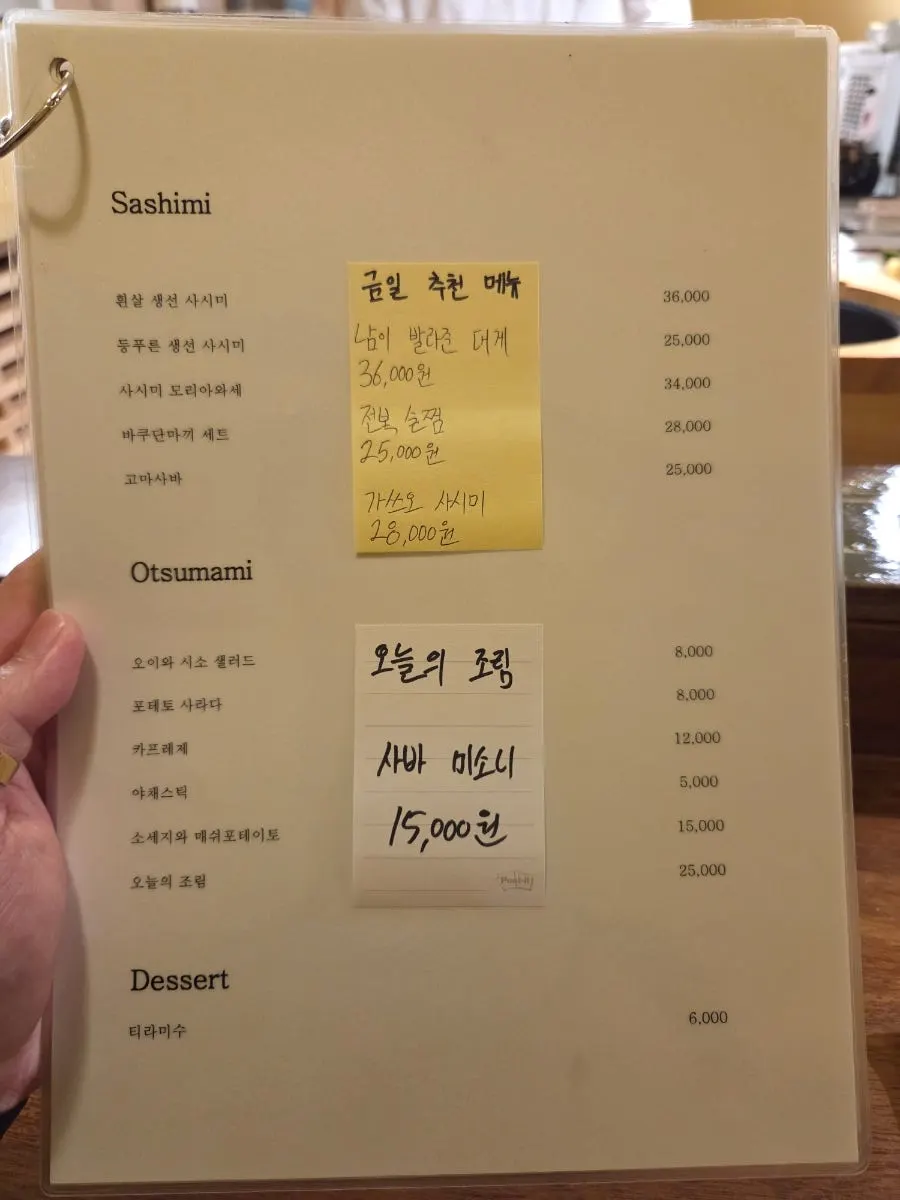 Sashimi
흰살 생선 사시미 36,000
등푸른 생선 사시미 25,000
사시미 모리아와세 34,000
바쿠단마끼 세트 28,000
고마사바 25,000
금일 추천 메뉴
남이 발라준 대게
36,000원
전복 술찜
25,000원
가쓰오 사시미
28,000원
Otsumami
오이와 시소 샐러드 8,000
포테토 사라다 8,000
카프레제 12,000
야채스틱 5,000
소세지와 매쉬포테이토 15,000
오늘의 조림 25,000
오늘의 조림
사바 미소니
15,000원
Post-it
Dessert
티라미수 6,000